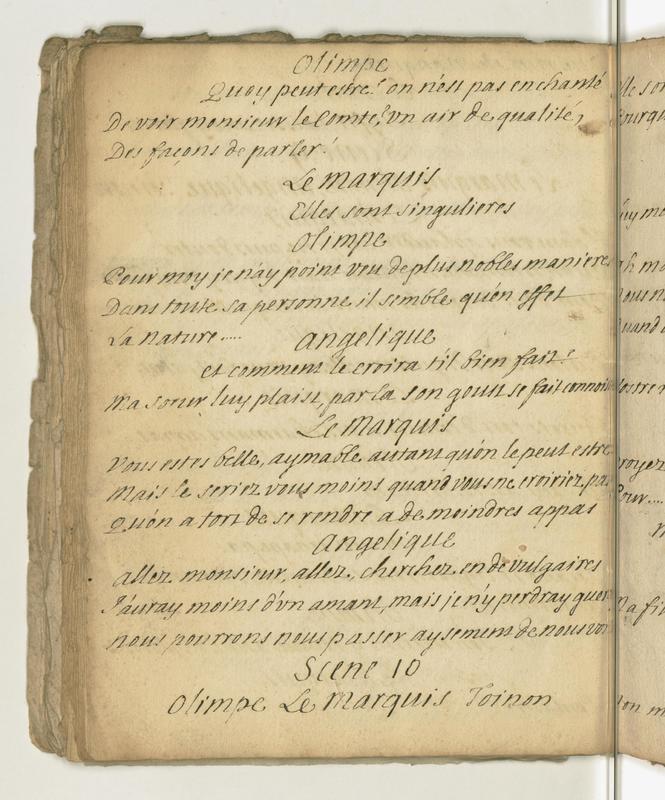 Olimpe
Quoy peut estre? on n'est pas enchanté
De voir monsieur le Comte? vn air de qualité,
Des façons de parler!
Le Marquis
Elles sont singulieres
Olimpe
Pour moy je n'ay point veu de plus nobles manieres
Dans toute sa personne il semble qu'en effet
La nature.....
Angelique
et comment le croira t'il bien fait?
Ma soeur luy plaist, par la son goust se fait connoi
Le Marquis
Vous estes belle, aymable autant qu'on le peut estre
Mais le seriez vous moins quand vous ne croiriez pa
Qu'on a tort de se rendre a de moindres appas
Angelique
Allez monsieur, allez, cherchez en de vulgaires
J'auray moins d'vn amant, mais je n'y perdray guer
nous pourrons nous passer aysement de nous voi
Scene 10
Olimpe Le Marquis Toinon